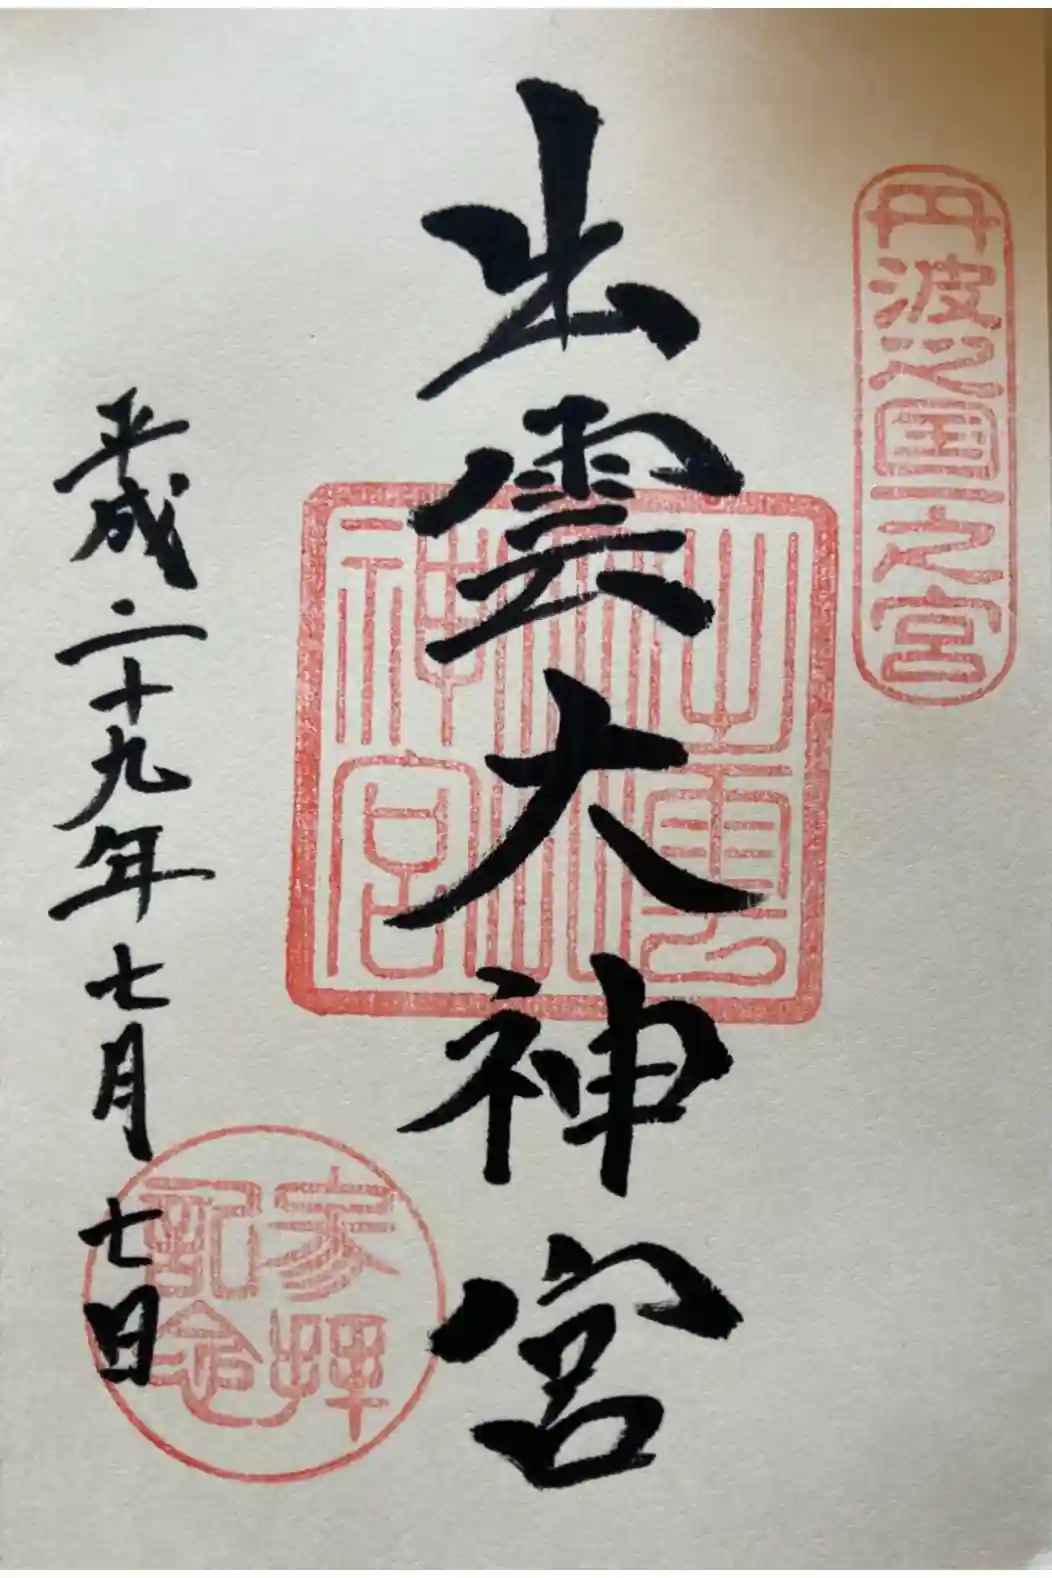 丹波之国一之宮
出雲大神宮
出雲大神宮
平成二十九年七月七日
参拝記念